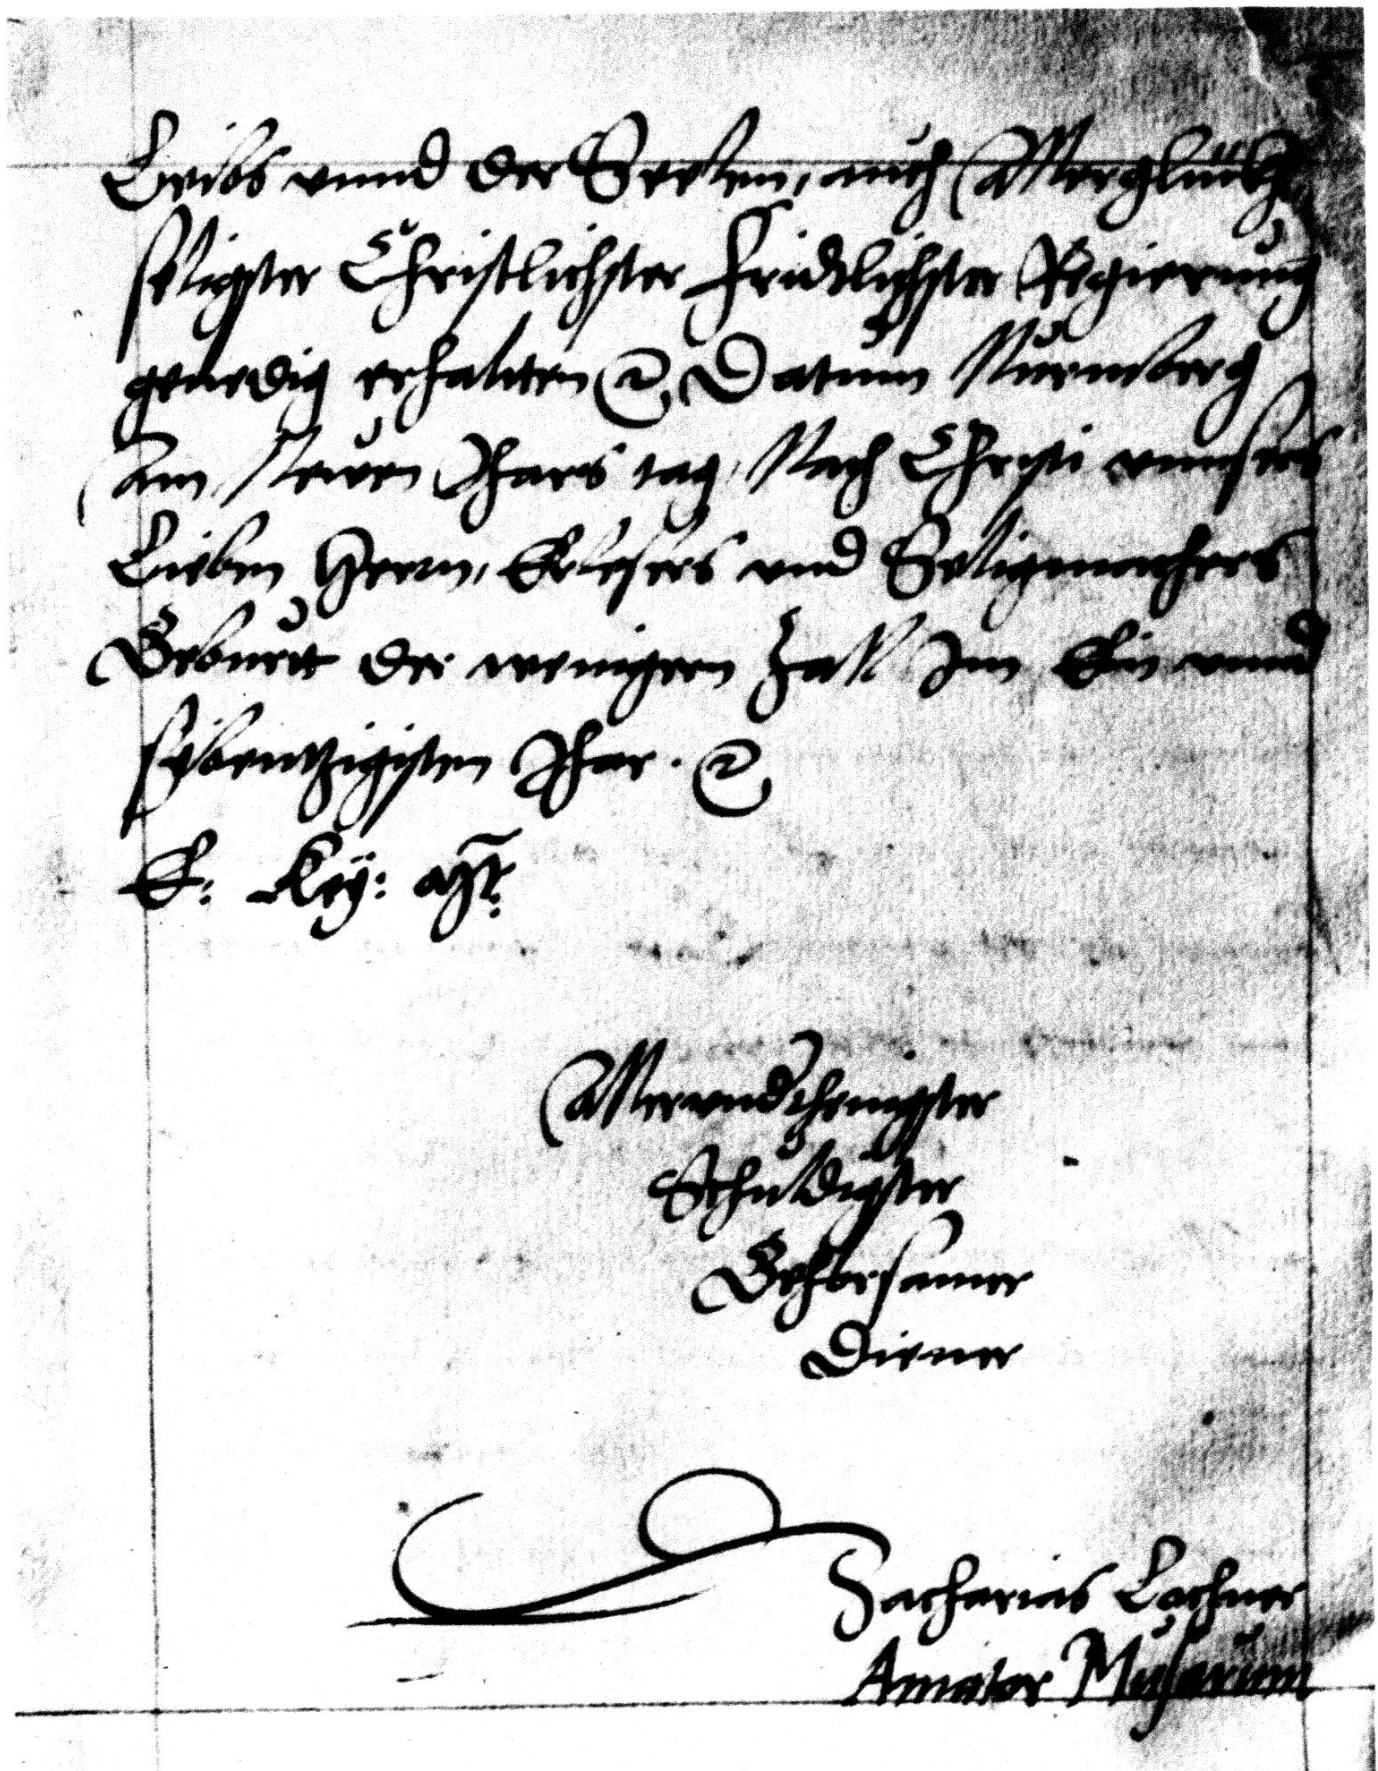 Leibs vnnd der Seelen, auch Allerglückh
seligster Christlichster fridtlichster Regierung
genedig erhalten ꝛc. Datum Nurmberg
Am Newen Jhars tag, Nach Christi vnnsers
Lieben Herrn, Erlesers vnd Seligmachers
Geburtt der wenigern Zall Jm Ein vnnd
sybentzigisten Jhar. ꝛc.
E: Key: Mt:
Allervndthenigster
Schuldigster
Gehorsamer
Diener
Zacharias Lochner
Amator Musarum